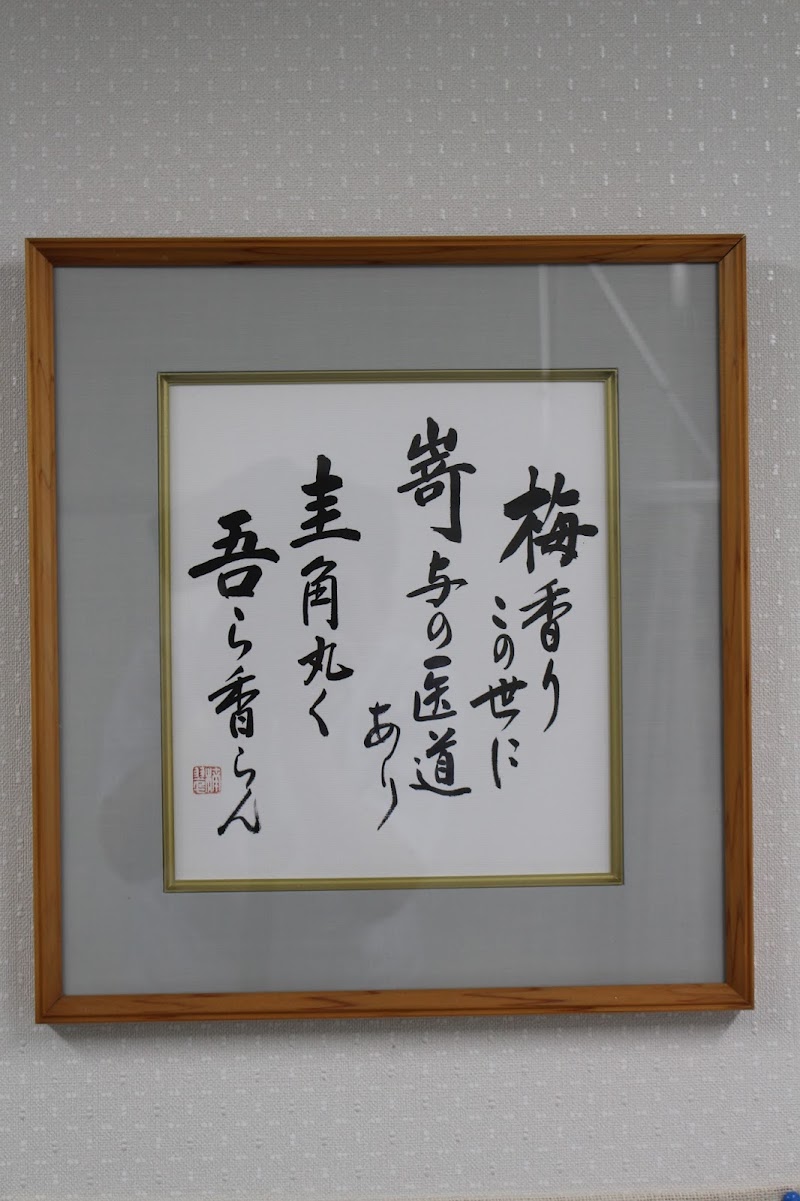 梅香り
この世に
嵜与の医道
あり
圭角丸く
吾ら香らん